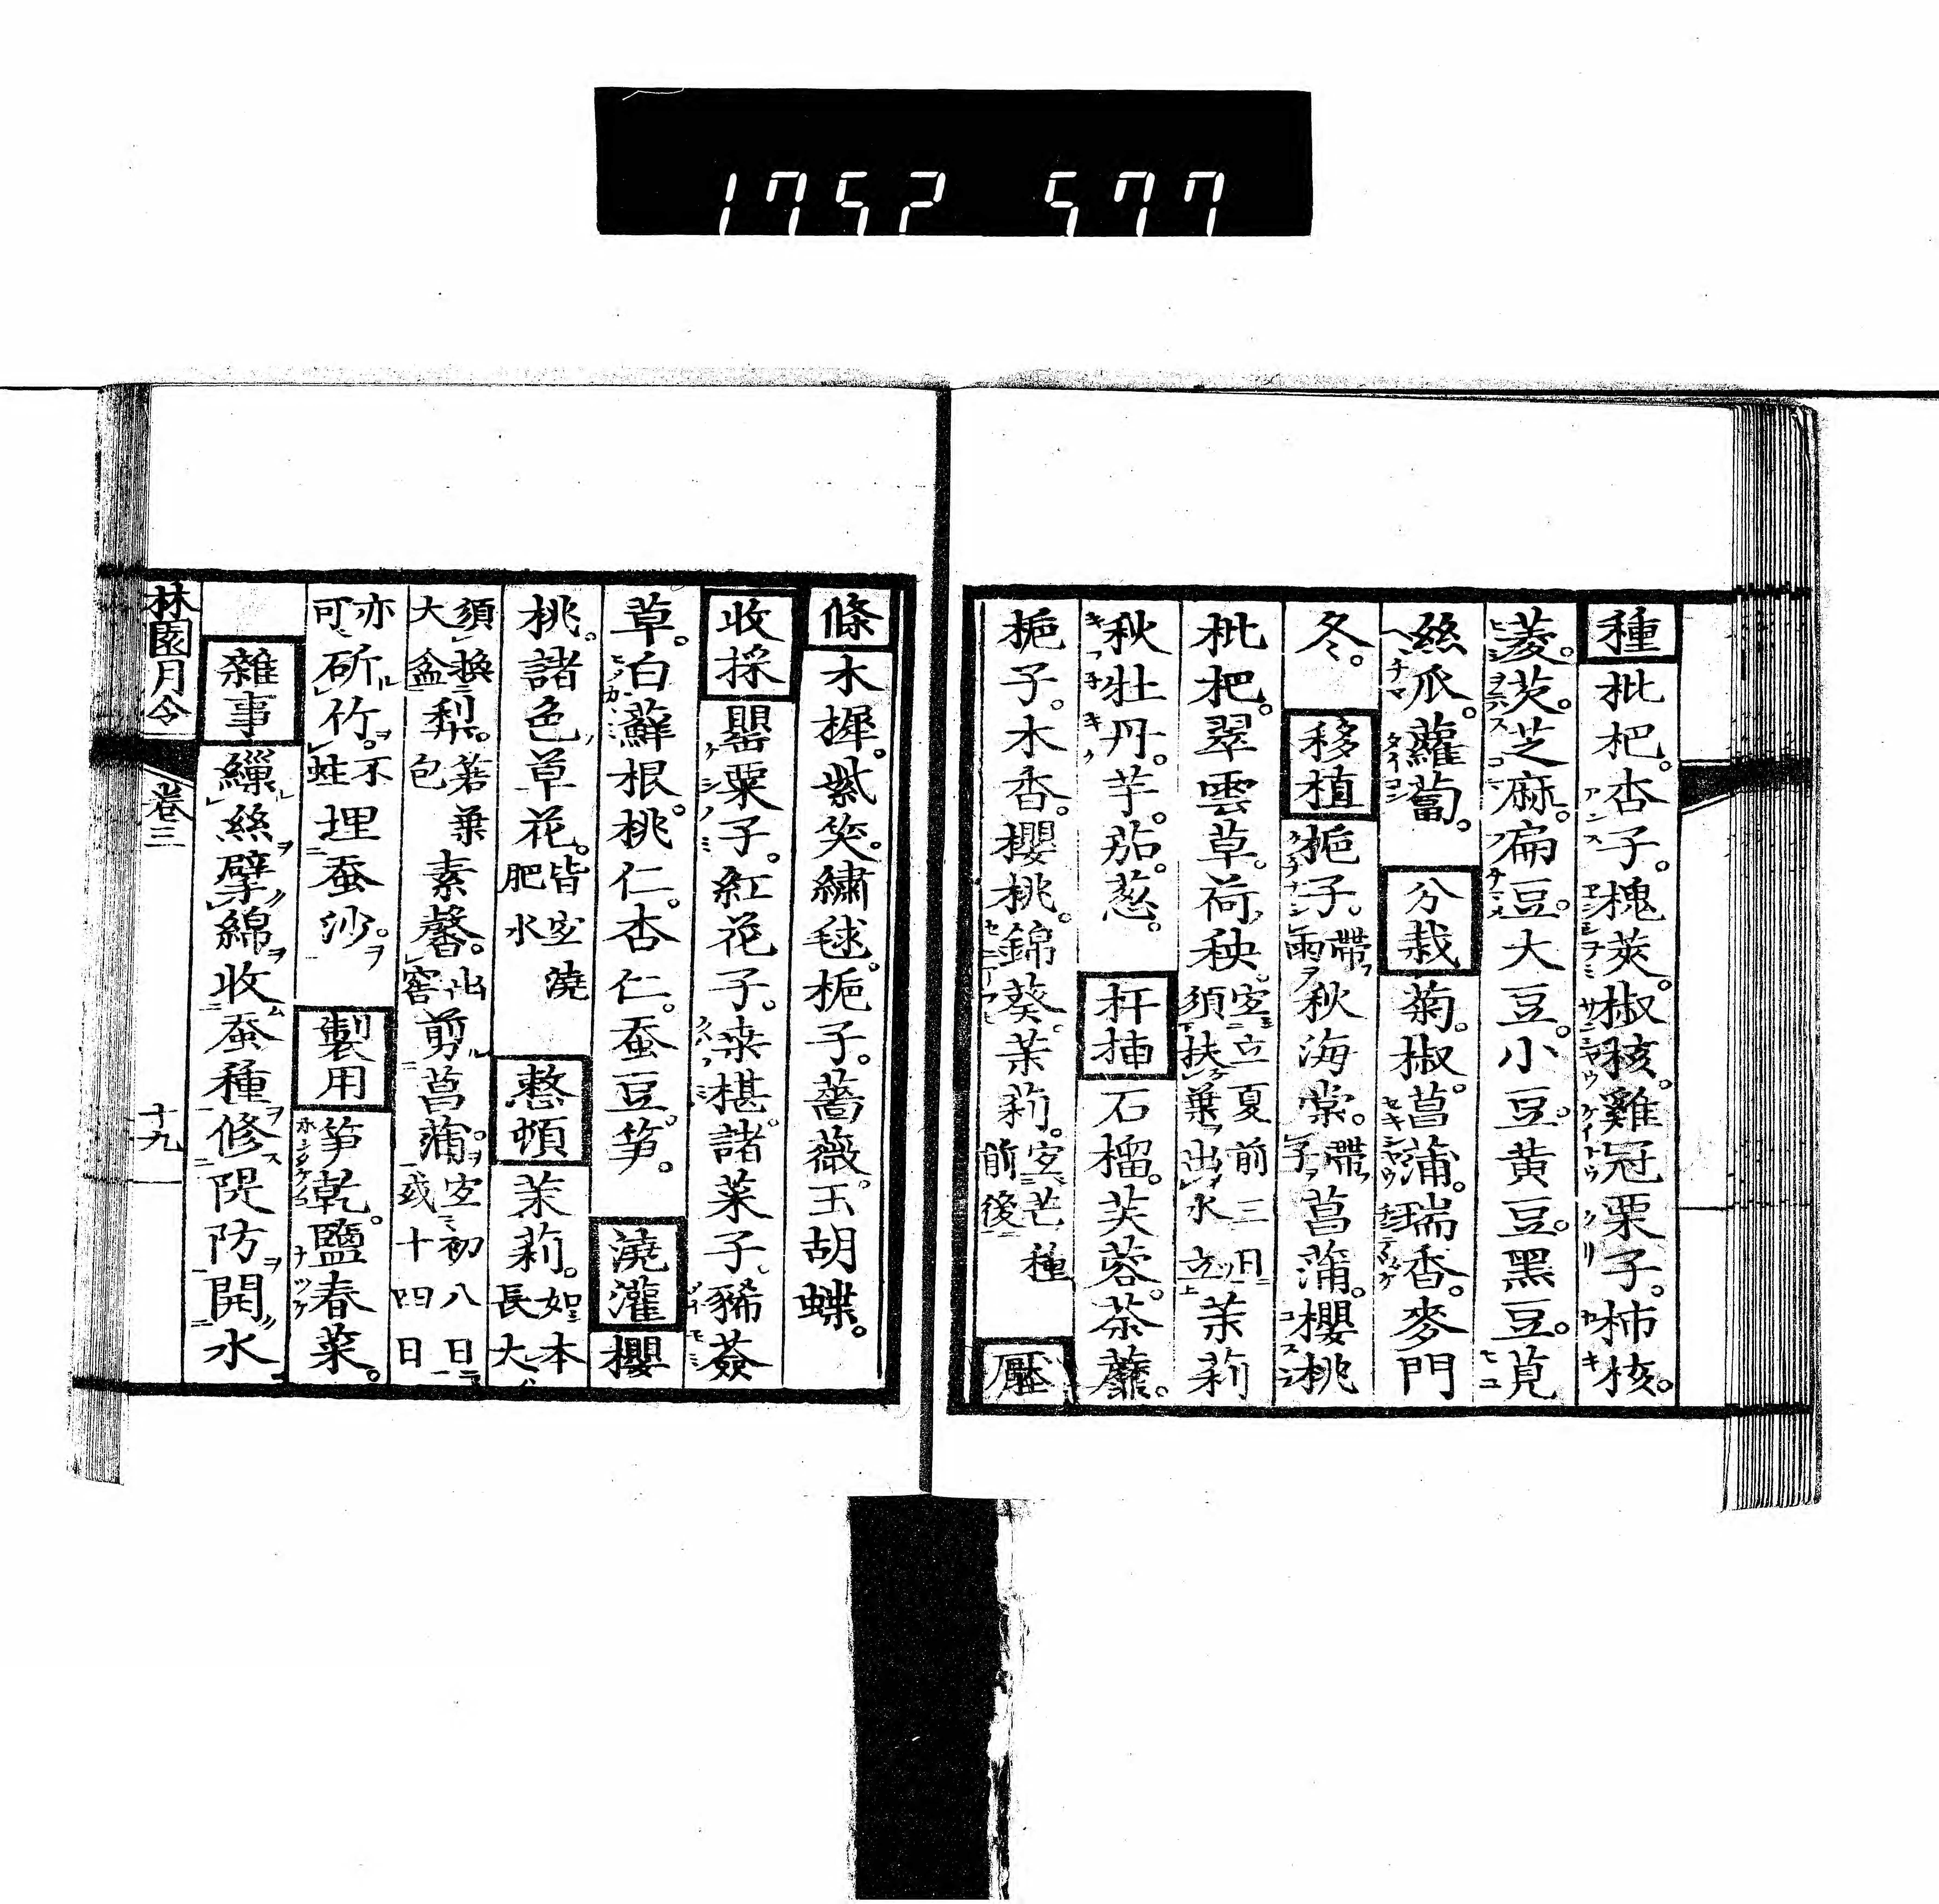 1752 577
種 枇杷。杏子。槐莢。椒核。雞冠。栗子。柿核。
菱。芡。芝麻。扁豆。大豆。小豆。黄豆。黑豆。莧
絲瓜。蘿蔔。 分栽 菊。椒。菖蒲。瑞香。麥門
冬。 移植 梔子。帶雨 秋海棠。帶子 菖蒲。櫻桃
枇杷。翠雲草。荷秧。宜立夏前三日須扶葉出水立 茉莉
秋牡丹。芋。茄。葱。 扦揷 石榴。芙蓉。荼蘼。
梔子。木香。櫻桃。錦葵。茉莉。宜芒種前後 壓
條 木樨。紫笑。繡毬。梔子。薔薇。玉胡蝶。
收採 罌粟子。紅花子。桒椹。諸菜子。豨薟
草。白蘚根。桃仁。杏仁。蚕豆。笋。 澆灌 櫻
桃。諸色草花。皆宜澆肥水 整頓 茉莉。如本長大
須換大盆 梨。箬葉包 素馨。出窖 剪菖蒲。宜初八日或十四日
亦可 斫竹。不蛀 埋蚕沙。 製用 笋乾。鹽春菜。
雜事 繅絲 擘綿 收蚕種 修隄防 開水
林園月令 卷三 十九